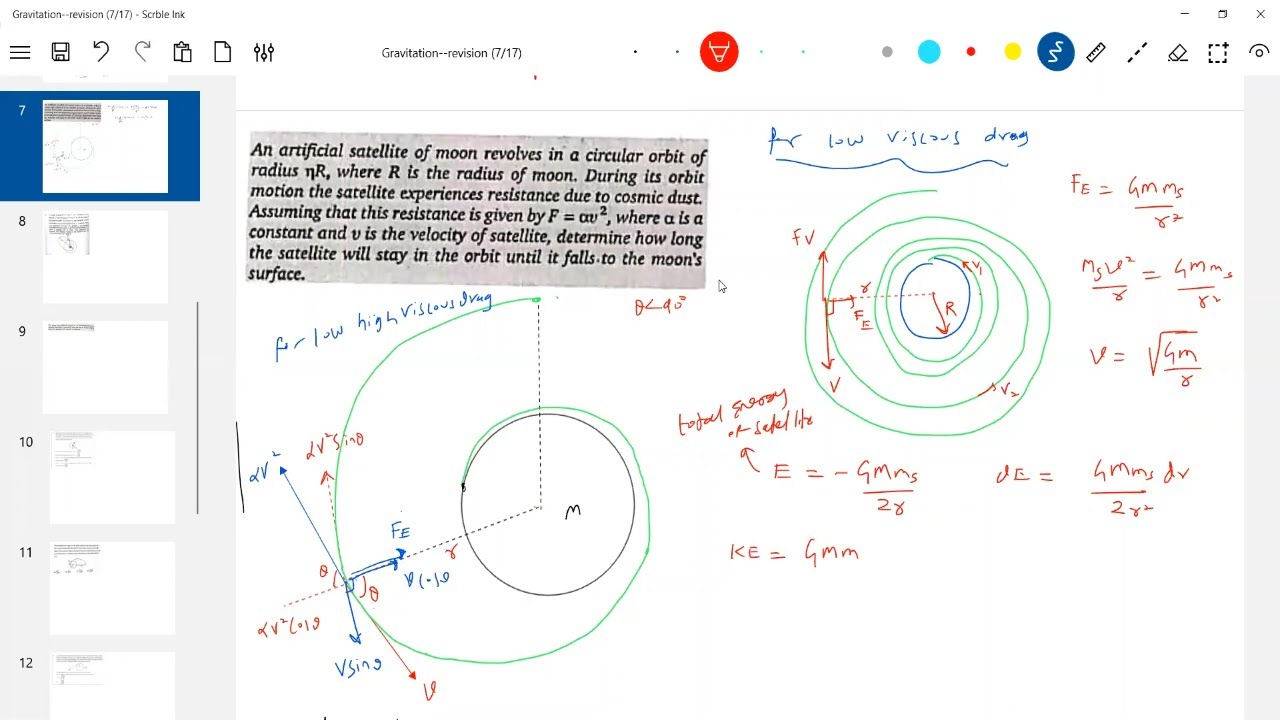 Gravitation--revision (7/17) - Scrble Ink
Gravitation--revision (7/17)
7
8
9
10
11
12
An artificial satellite of moon revolves in a circular orbit of
radius ηR, where R is the radius of moon. During its orbit
motion the satellite experiences resistance due to cosmic dust.
Assuming that this resistance is given by F = αv², where α is a
constant and v is the velocity of satellite, determine how long
the satellite will stay in the orbit until it falls to the moon's
surface.
for low viscous drag
F_E = GMm_s / r²
m_s v² / r = GMm_s / r²
v = √(GM / r)
FV
r
F_E
V
R
V₁
V₂
for low high viscous drag
θ<90°
αV²
αV² sinθ
F_E
v cosθ
r
M
θ
θ
αV² cosθ
V sinθ
V
total energy
of satellite
E = - GMm_s / 2r
dE = GMm_s dr / 2r²
KE = GMm